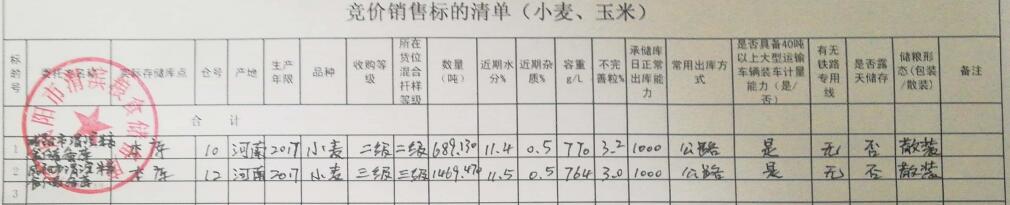 竞价销售标的清单（小麦、玉米）
标的号 委托方名称 实际存储库点 仓号 产地 生产年限 品种 收购等级 所在货位混合扦样等级 数量（吨） 近期水分% 近期杂质% 容重g/L 不完善粒% 承储库日正常出库能力 常用出库方式 是否具备40吨以上大型运输车辆装车计量能力（是/否） 有无铁路专用线 是否露天储存 储粮形态(包装/散装) 备注
合 计
1 本库 10 河南 2017 小麦 二级 二级 689.130 11.4 0.5 770 3.2 1000 公路 是 无 否 散装
2 本库 12 河南 2017 小麦 三级 三级 1469.470 11.5 0.5 764 3.0 1000 公路 是 无 否 散装
3